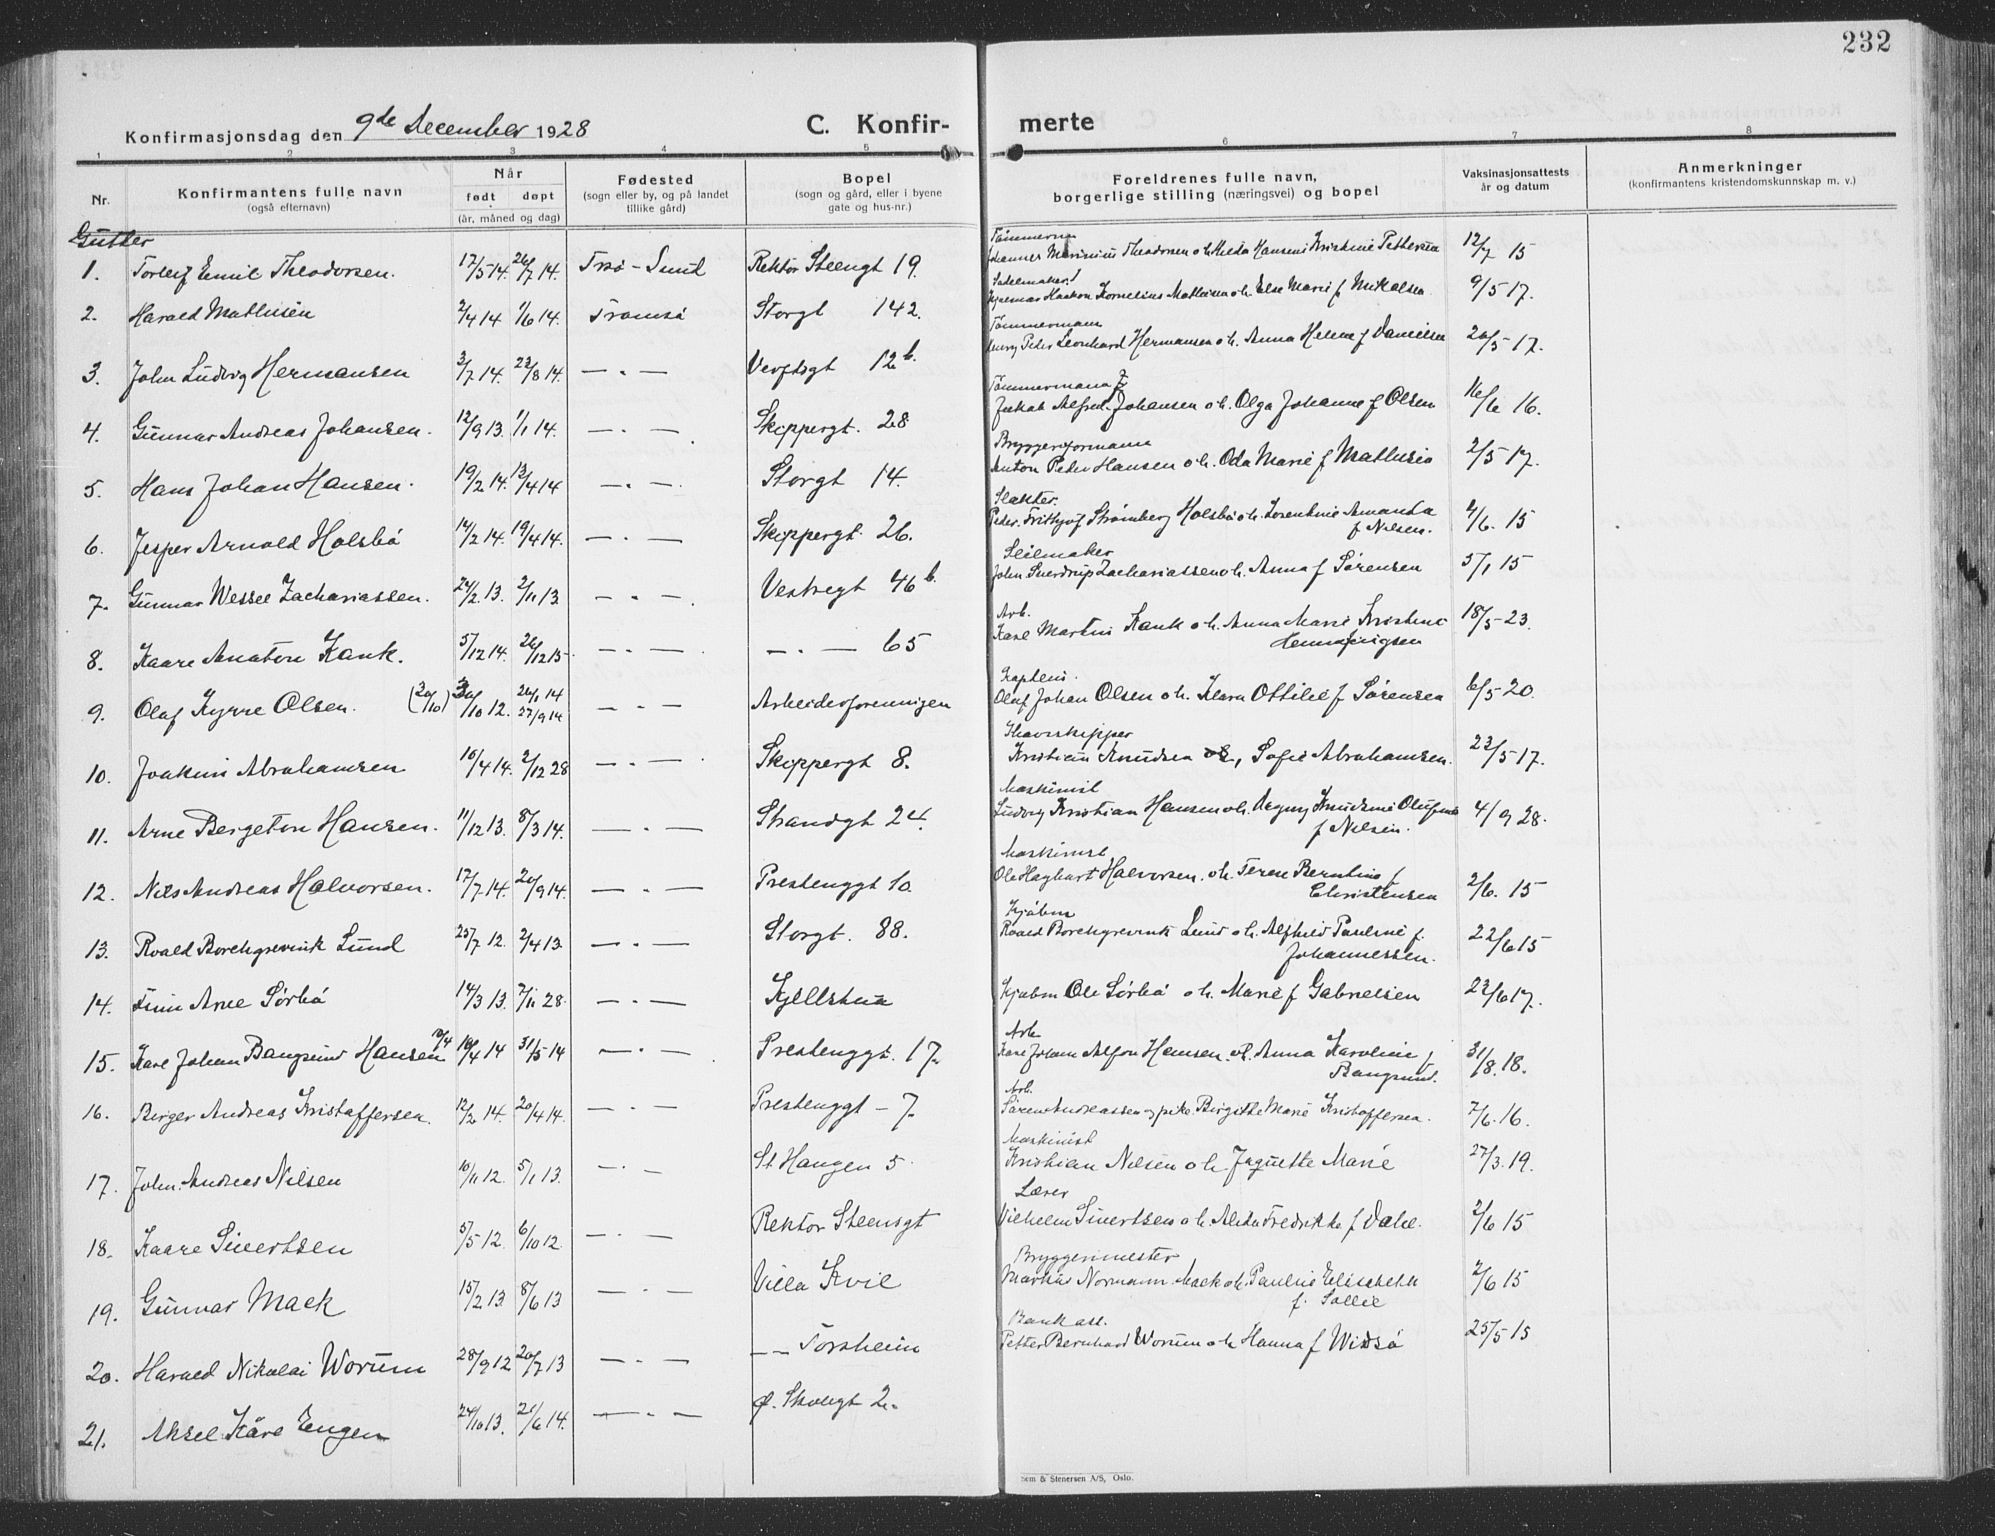 232
Konfirmasjonsdag den 9de December 1928
C. Konfir- merte
1 2 3 4 5 6 7 8
Nr.
Konfirmantens fulle navn
(også efternavn)
Når
født døpt
(år, måned og dag)
Fødested
(sogn eller by, og på landet
tillike gård)
Bopel
(sogn og gård, eller i byene
gate og hus-nr.)
Foreldrenes fulle navn,
borgerlige stilling (næringsvei) og bopel
Vaksinasjonsattests
år og datum
Anmerkninger
(konfirmantens kristendomskunnskap m. v.)
Gutter
Tømmerm
1. Torleif Emil Theodorsen. 17/5 14. 26/7 14. Tromsø-Sund Rektor Steengt 19. Johannes Marinius Theodorsen o h. Hansine Kristine Pettersen 12/7 15
Sadelmaker
2. Harald Mathisen 2/4 14 1/6 14. Tromsø Storgt 142. Hjalmar Haakon Kornelius Mathisen o h. Else Marie f Mikalsen 9/5 17.
Tömmermann
3. John Ludvig Hermansen 3/7 14. 23/8 14. — . — Verftsgt 12 b. Peder Leonhard Hermansen o h. Anna Helene f Danielsen 20/5 17.
Tömmermann
4. Gunnar Andreas Johansen. 12/9 13. 1/1 14. — . — Skippergt. 28 Jakob Alfred Johansen o h. Olga Johanne f Olsen 16/6 16.
Bryggeriformann
5. Hans Johan Hansen. 19/2 14. 13/4 14 — . — Storgt 14. Anton Peder Hansen o h. Oda Marie f Mathisen 2/5 17.
Slakter.
6. Jesper Arnold Holsbö 14/2 14. 19/4 14. — . — Skippergt. 26. Peder Frithjof Strömberg Holsbö o h. Lorentine Amanda 4/6. 15
f Nilsen.
Seilmaker
7. Gunnar Wessel Zachariassen. 24/2. 13. 2/11 13. — . — Vestregt 46 b. John Sverdrup Zachariassen o h. Anna f Sörensen 5/1 15
Arb.
8. Kaare Anaton Kank. 5/12 14. 26/12 15 — . — — . — 65 Karl Martin Kank o h. Anna Marie Kristine 18/5 23.
Henningsen
Kaptein.
9. Olaf Kyrre Olsen. (30/10) 30/10 12. 26/1 14 — . — Arbeiderforeningen Olaf Johan Olsen o h. Klara Ottilie f Sörensen 6/5 20.
27/9 14
Havskipper
10. Joakim Abrahamsen 16/4 14. 2/12 28 — . — Skippergt 8. Kristian Knudsen og, Sofie Abrahamsen. 23/5 17.
Maskinist
11. Arne Bergeton Hansen. 11/12 13. 8/3 14. — . — Strandgt 24. Ludvig Kristian Hansen o h. Dagny Olufine 4/9 28.
f Nilsen.
Maskinist
12. Nils Andreas Halvorsen. 17/7 14. 20/9 14. — . — Prestenggt 10. Ole Hagbart Halvorsen o h. Terese Berntine f 2/6. 15
Christensen
Kjöbm
13. Roald Borchgrevink Lund 25/7 12. 2/4 13 — . — Storgt. 88. Roald Borchgrevink Lund o h. Alfhild Pauline f. 22/6 15
Johannessen.
14. Finn Arne Sörbö 14/3 13. 7/11 28. — . — Kjellstua Kjøbm Ole Sörbö o h. Marie f Gabrielsen 23/6 17.
Arb
15. Karl Johan Bangsund Hansen 10/4 14 31/5 14 — . — Prestenggt. 17. Karl Johan Alfon Hansen oh. Anna Karoline f 31/8. 18.
Bangsund.
Arb.
16. Birger Andreas Kristoffersen. 12/2 14. 20/4 14. — . — Prestenggt - 7. Sören Andreassen og pike Birgitte Marie Kristoffersen. 7/6. 16.
Maskinist
17. John. Andreas Nilsen 10/11 12. 5/1 13. — . — St Hangen 5. Kristian Nilsen o h. Jaquette Marie 27/3. 19.
Lærer
18. Kaare Sivertsen 5/5 12. 6/10 12. — . — Rektor Steensgt Vilhelm Sivertsen o h. Aleta Fredrikke f Dahl. 2/6 15
Bryggerimester
19. Gunnar Mack 15/2 13. 8/6 13 — . — Villa Kvil Markus Normann Mack o h. Pauline Elisabeth 2/6 15
f. Sollie
Bank ass.
20. Harald Nikolai Worum 28/9 12 20/7 13 — . — — Torsheim Petter Bernhard Worum o h. Hanna f Widsö 25/5 15
21. Aksel Kåre Engen 24/10 13. 21/6 14. — . — Ø. Skolegt 2.
Sem & Stenersen A/S, Oslo.